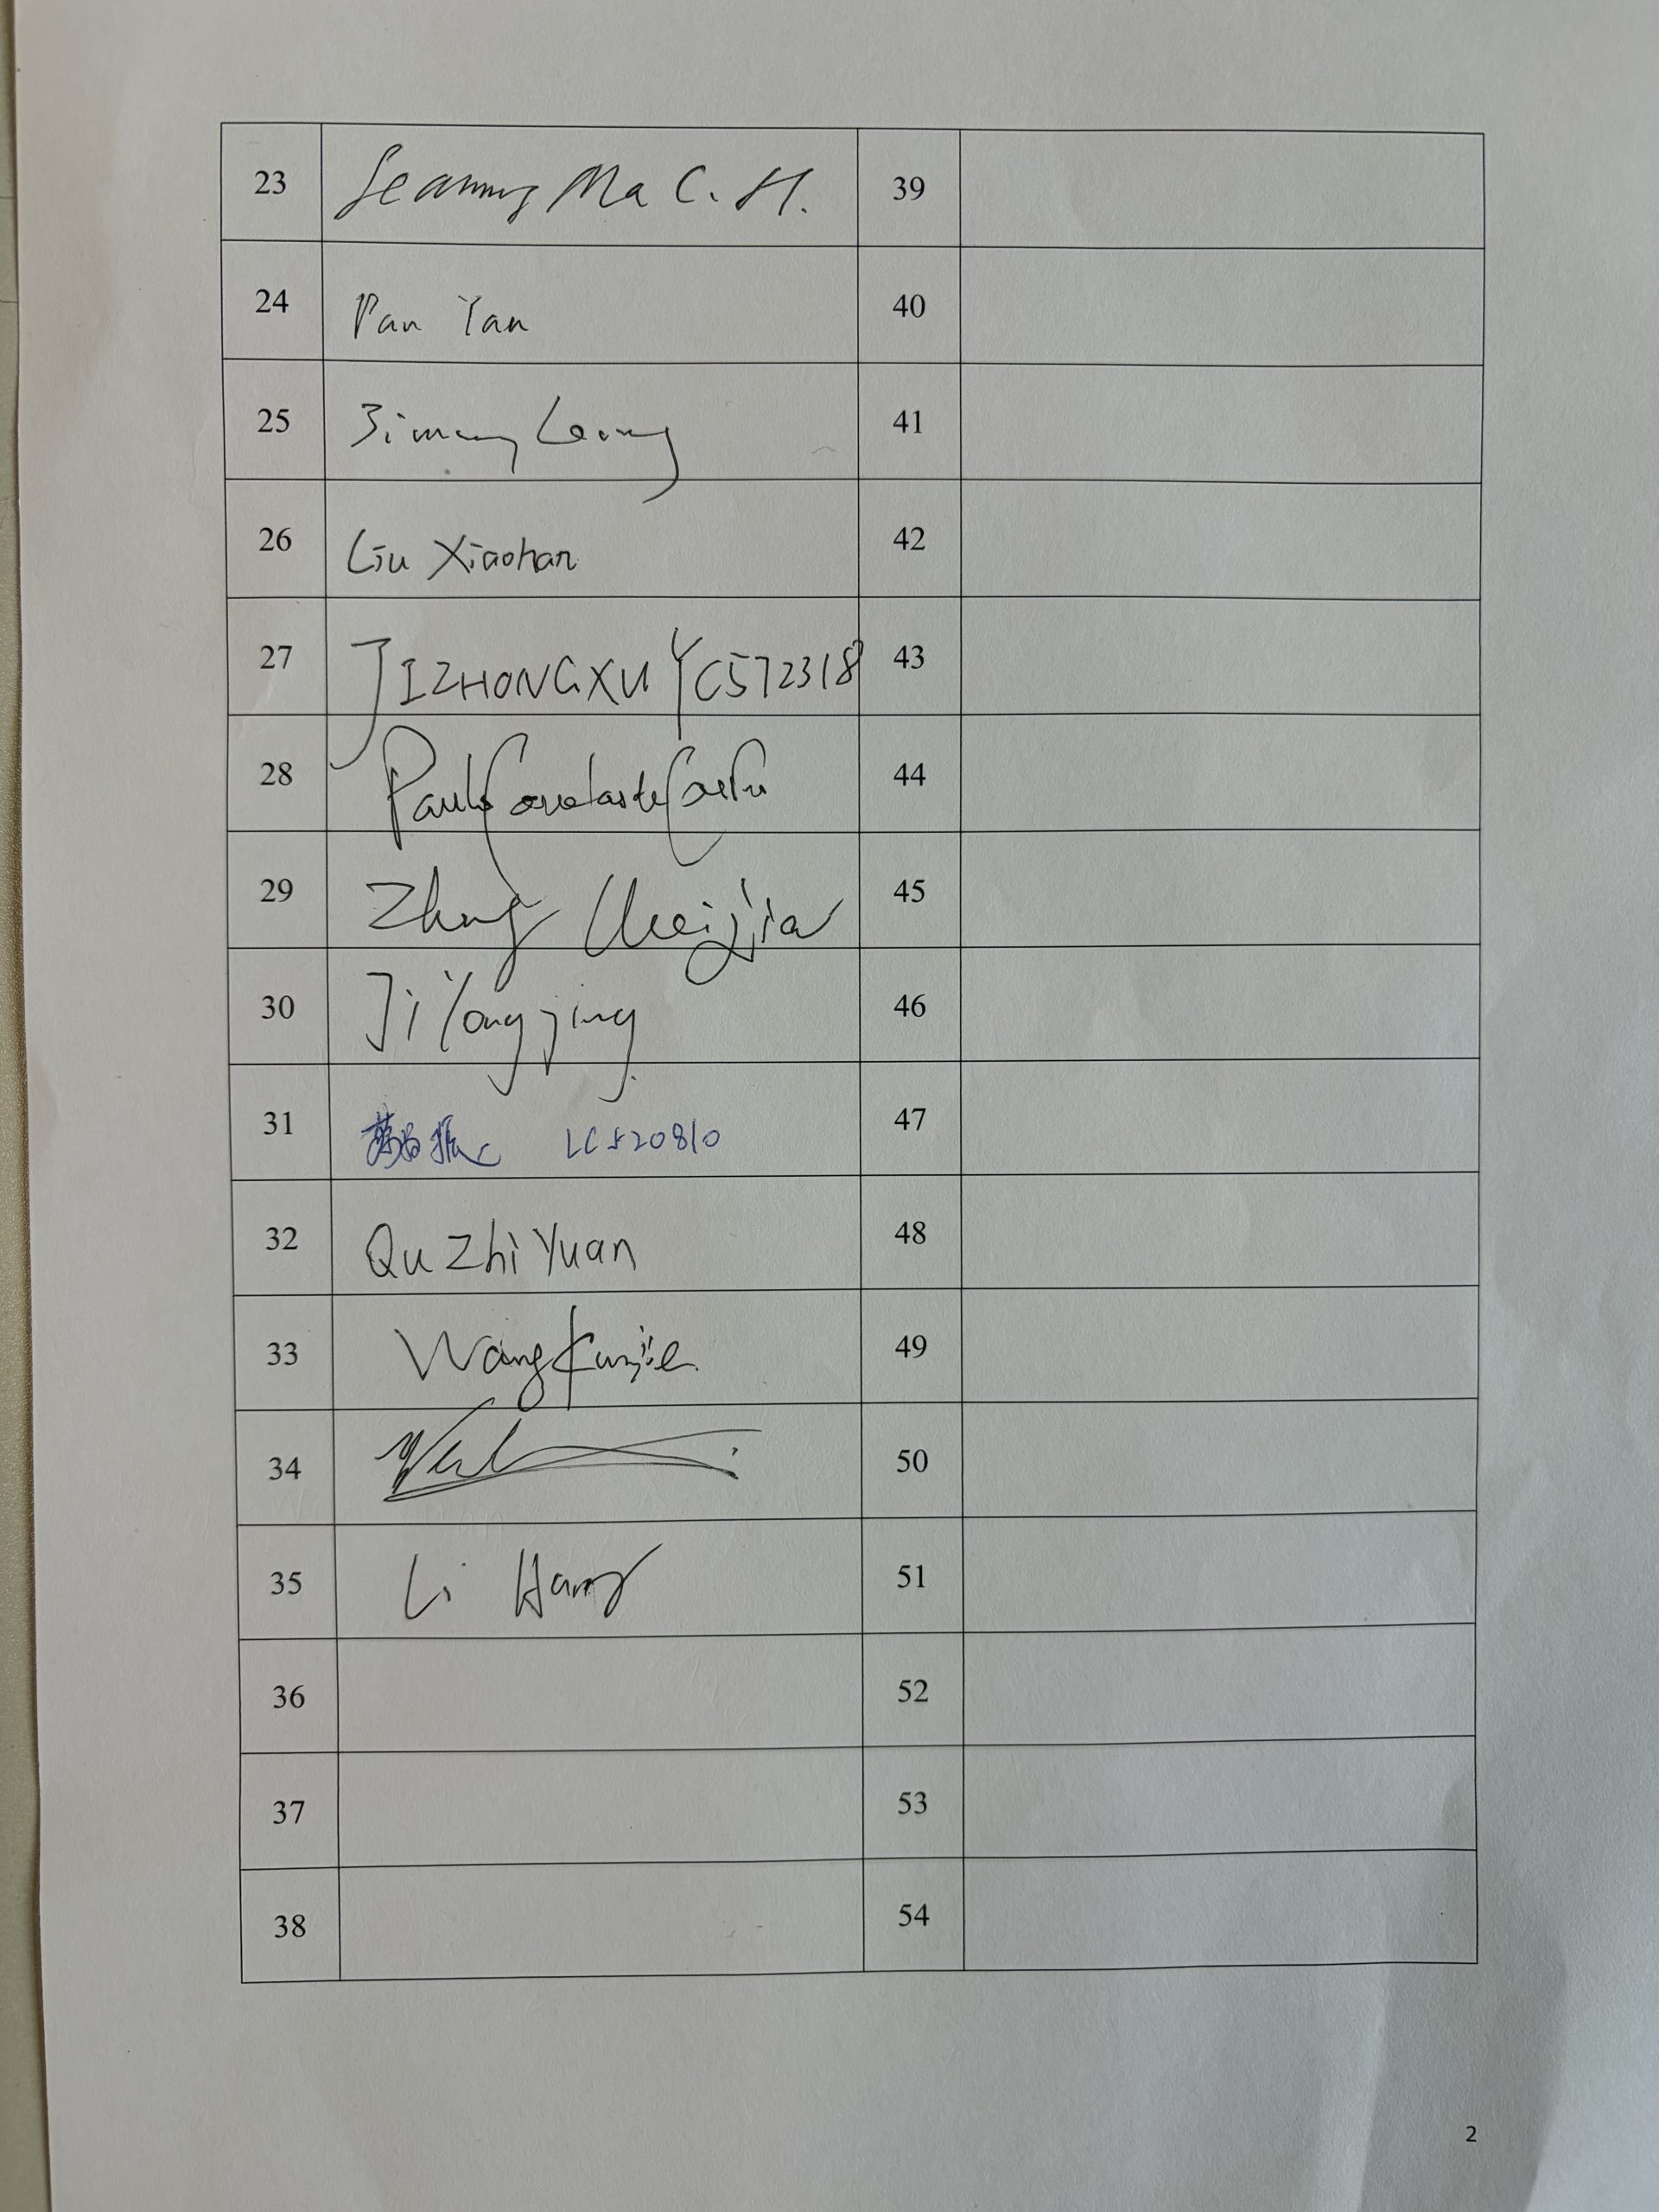 23 Ma C. H. 39
24 Pan Yan 40
25 Jimmy Leong 41
26 Liu Xiaohan 42
27 JIZHONGXU YC572318 43
28 44
29 Zhang 45
30 Ji Yongjing 46
31 LC520810 47
32 Qu Zhi Yuan 48
33 Wang Kunjie 49
34 50
35 Li Hang 51
36 52
37 53
38 54
2